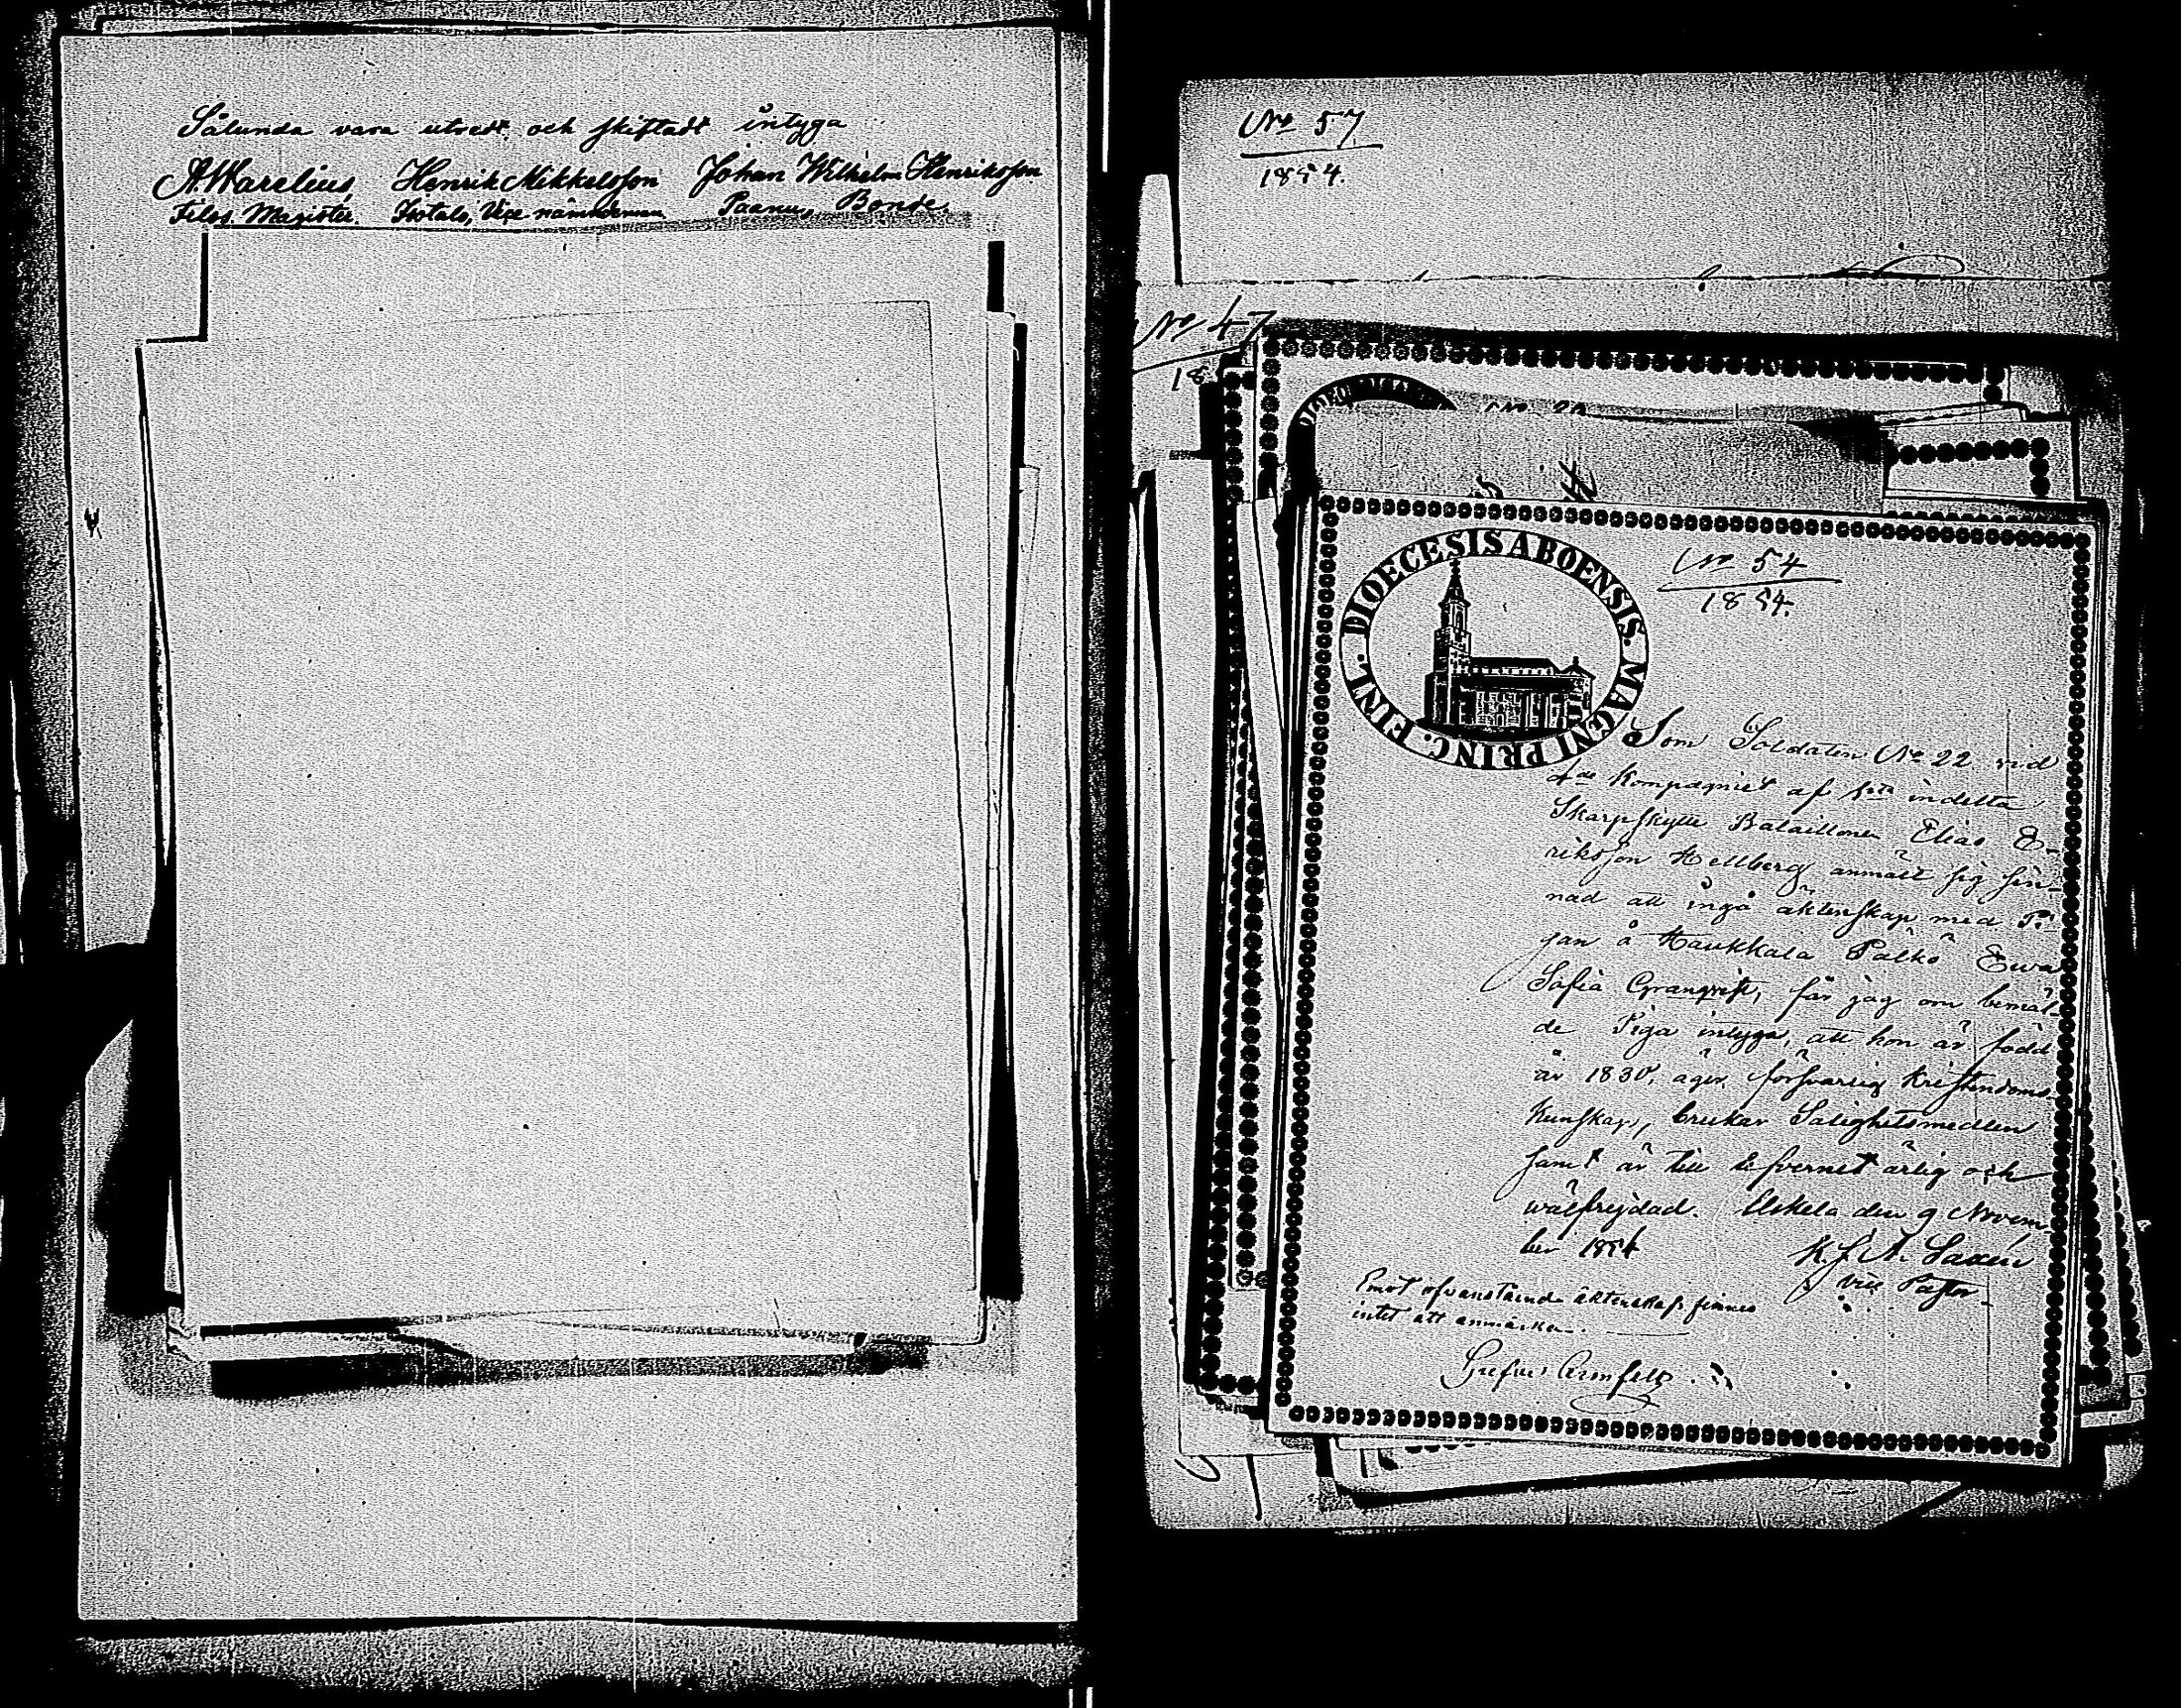 Sålunda vara utredt och skiftadt intyga
A Warelius, Henrik Mikkelsson Johan Wilhelm Henriksson
Filos. Magister. Isotalo, Vice nämndeman Paanu, Bonde.
No 57
1854.
No 47
18
DIOECESIS ABOENSIS. MAGNI PRINC. FINL.
No 54
1854.
Som Soldaten No 22 vid
4de Kompagniet af 1sta indelta
Skarpskytte Bataillonen Elias E-
riksson Hellberg anmält sig sin-
nad att ingå äktenskap med Pi-
gan å Haukkala Palko Ewa
Sofia Granqvist, får jag om bemäl-
de Piga intyga, att hon är född
år 1830, äger försvarlig Kristendoms
Kunskap, brukar Salighetsmedlen
samt är till lefvernet ärlig och
wälfrejdad. Uskela den 9 Novem
ber 1854
K. J. A. Saxen
Vice Pastor.
Emot ofvanstående äktenskap finnes
intet att anmärka.
Gustaf Armfelt.